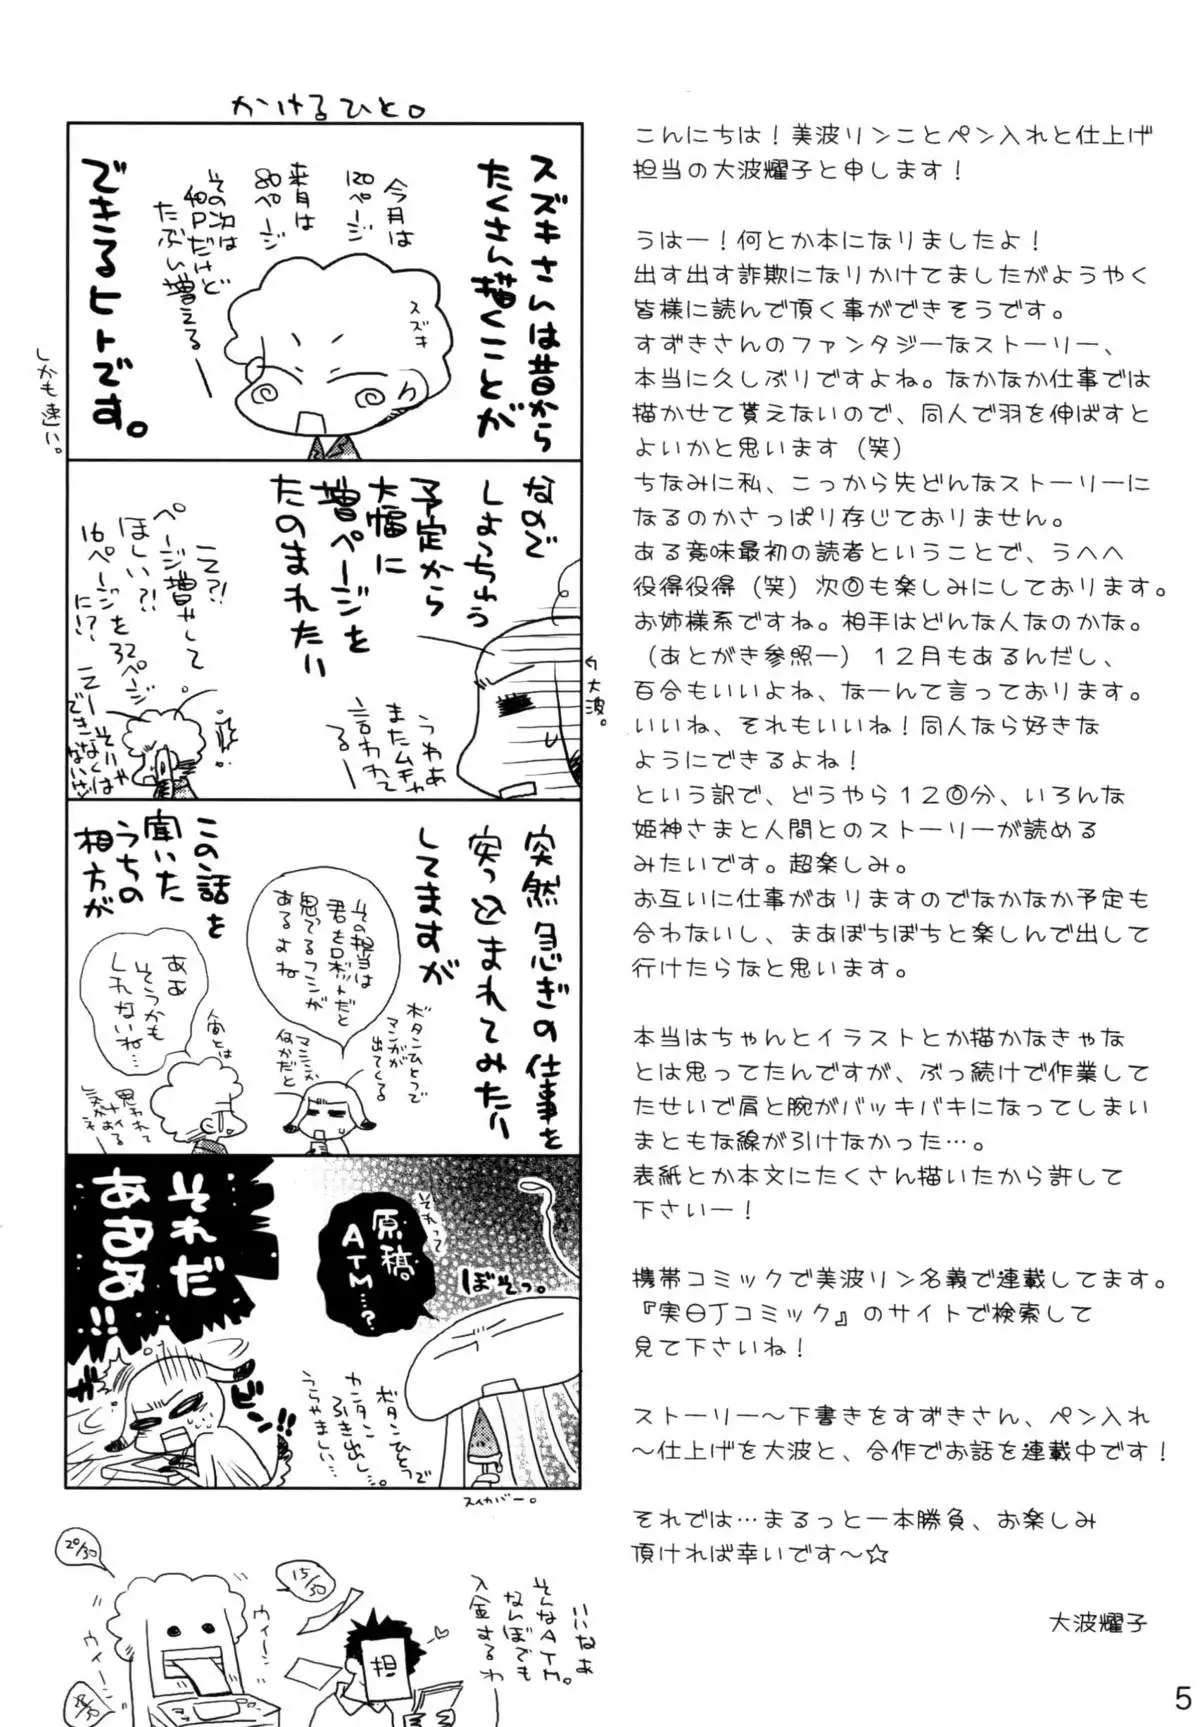 かけるひと。
スズキさんは昔から
たくさん描くことが
できるヒトです。
しかも速い。
今月は
120ページ
来月は
80ページ
その次は
40Pだけど
たぶん増えるー
スズキ
なので
しょっちゅう
予定から
大幅に
増ページを
たのまれたり
大波。
うわあ
またムチャ
言われて
るー
え?!
ページ増やして
ほしい?!
16ページを32ページ
に!?
突然急ぎの仕事を
突っこまれてみたり
してますが
この話を
聞いた
うちの
相方が
その担当は
君をロボットだと
思ってるフシが
あるよね
ボタンひとつで
マンガが
出てくる
マシンか
何かだと
ああ
そうかも
しれないね…
人間とは
思われて
ぼそっ。
それって
原稿
ATM…?
それだ
あああ!!
ガッ
ビシ!!
ボタンひとつで
カンタン
ひき出し…。
うらやましい…
スイカバー。
20/30
15/30
ウィーン
ウィーン
担
いいなぁ
そんなATM。
なんぼでも
入金するわ
こんにちは！美波リンことペン入れと仕上げ
担当の大波耀子と申します！
うはー！何とか本になりましたよ！
出す出す詐欺になりかけてましたがようやく
皆様に読んで頂く事ができそうです。
すずきさんのファンタジーなストーリー、
本当に久しぶりですよね。なかなか仕事では
描かせて貰えないので、同人で羽を伸ばすと
よいかと思います（笑）
ちなみに私、こっから先どんなストーリーに
なるのかさっぱり存じておりません。
ある意味最初の読者ということで、うへへ
役得役得（笑）次回も楽しみにしております。
お姉様系ですね。相手はどんな人なのかな。
（あとがき参照ー）１２月もあるんだし、
百合もいいよね、なーんて言っております。
いいね、それもいいね！同人なら好きな
ようにできるよね！
という訳で、どうやら１２回分、いろんな
姫神さまと人間とのストーリーが読める
みたいです。超楽しみ。
お互いに仕事がありますのでなかなか予定も
合わないし、まあぼちぼちと楽しんで出して
行けたらなと思います。
本当はちゃんとイラストとか描かなきゃな
とは思ってたんですが、ぶっ続けで作業して
たせいで肩と腕がバッキバキになってしまい
まともな線が引けなかった…。
表紙とか本文にたくさん描いたから許して
下さいー！
携帯コミックで美波リン名義で連載してます。
『実日Jコミック』のサイトで検索して
見て下さいね！
ストーリー～下書きをすずきさん、ペン入れ
～仕上げを大波と、合作でお話を連載中です！
それでは…まるっと一本勝負、お楽しみ
頂ければ幸いです～☆
大波耀子
5